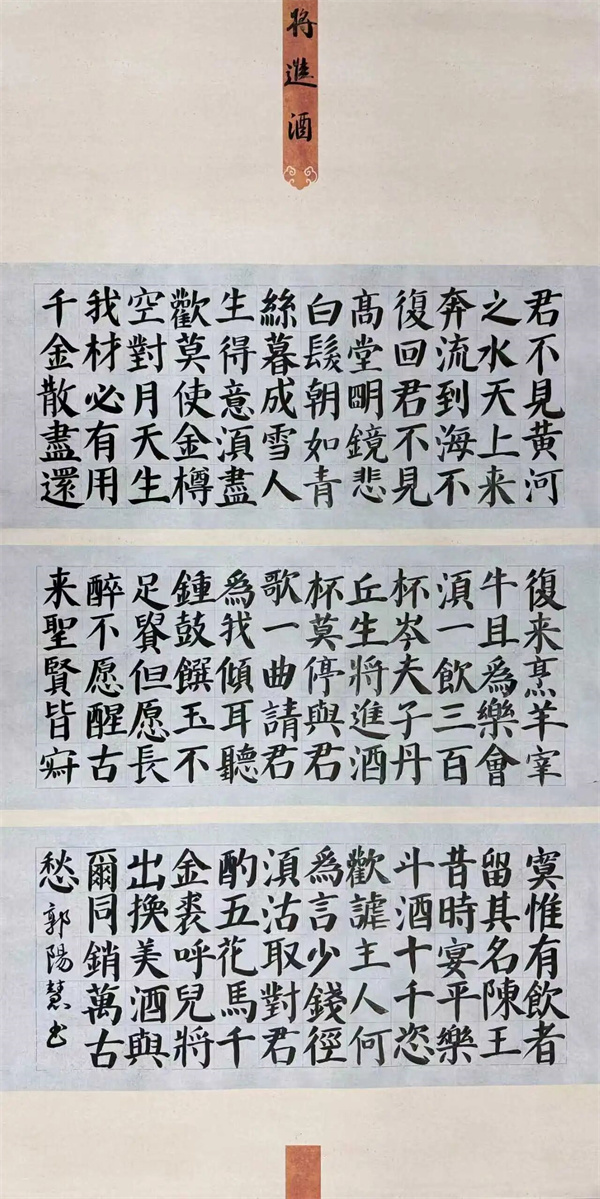 将進酒
君不見黄河
之水天上来
奔流到海不
復回君不見
髙堂眀鏡悲
白髮朝如青
絲暮成雪人
生得意湏盡
歡莫使金樽
空對月天生
我材必有用
千金散盡還
復来烹羊宰
牛且爲樂會
湏一飲三百
杯岑夫子丹
丘生將進酒
杯莫停與君
歌一曲請君
爲我傾耳聽
鍾鼓饌玉不
足貴但愿長
醉不愿醒古
来聖賢皆寂
寞惟有飲者
留其名陳王
昔時宴平樂
斗酒十千恣
歡謔主人何
爲言少錢徑
湏沽取對君
酌五花馬千
金裘呼兒將
出換美酒與
爾同銷萬古
愁 郭陽慧书